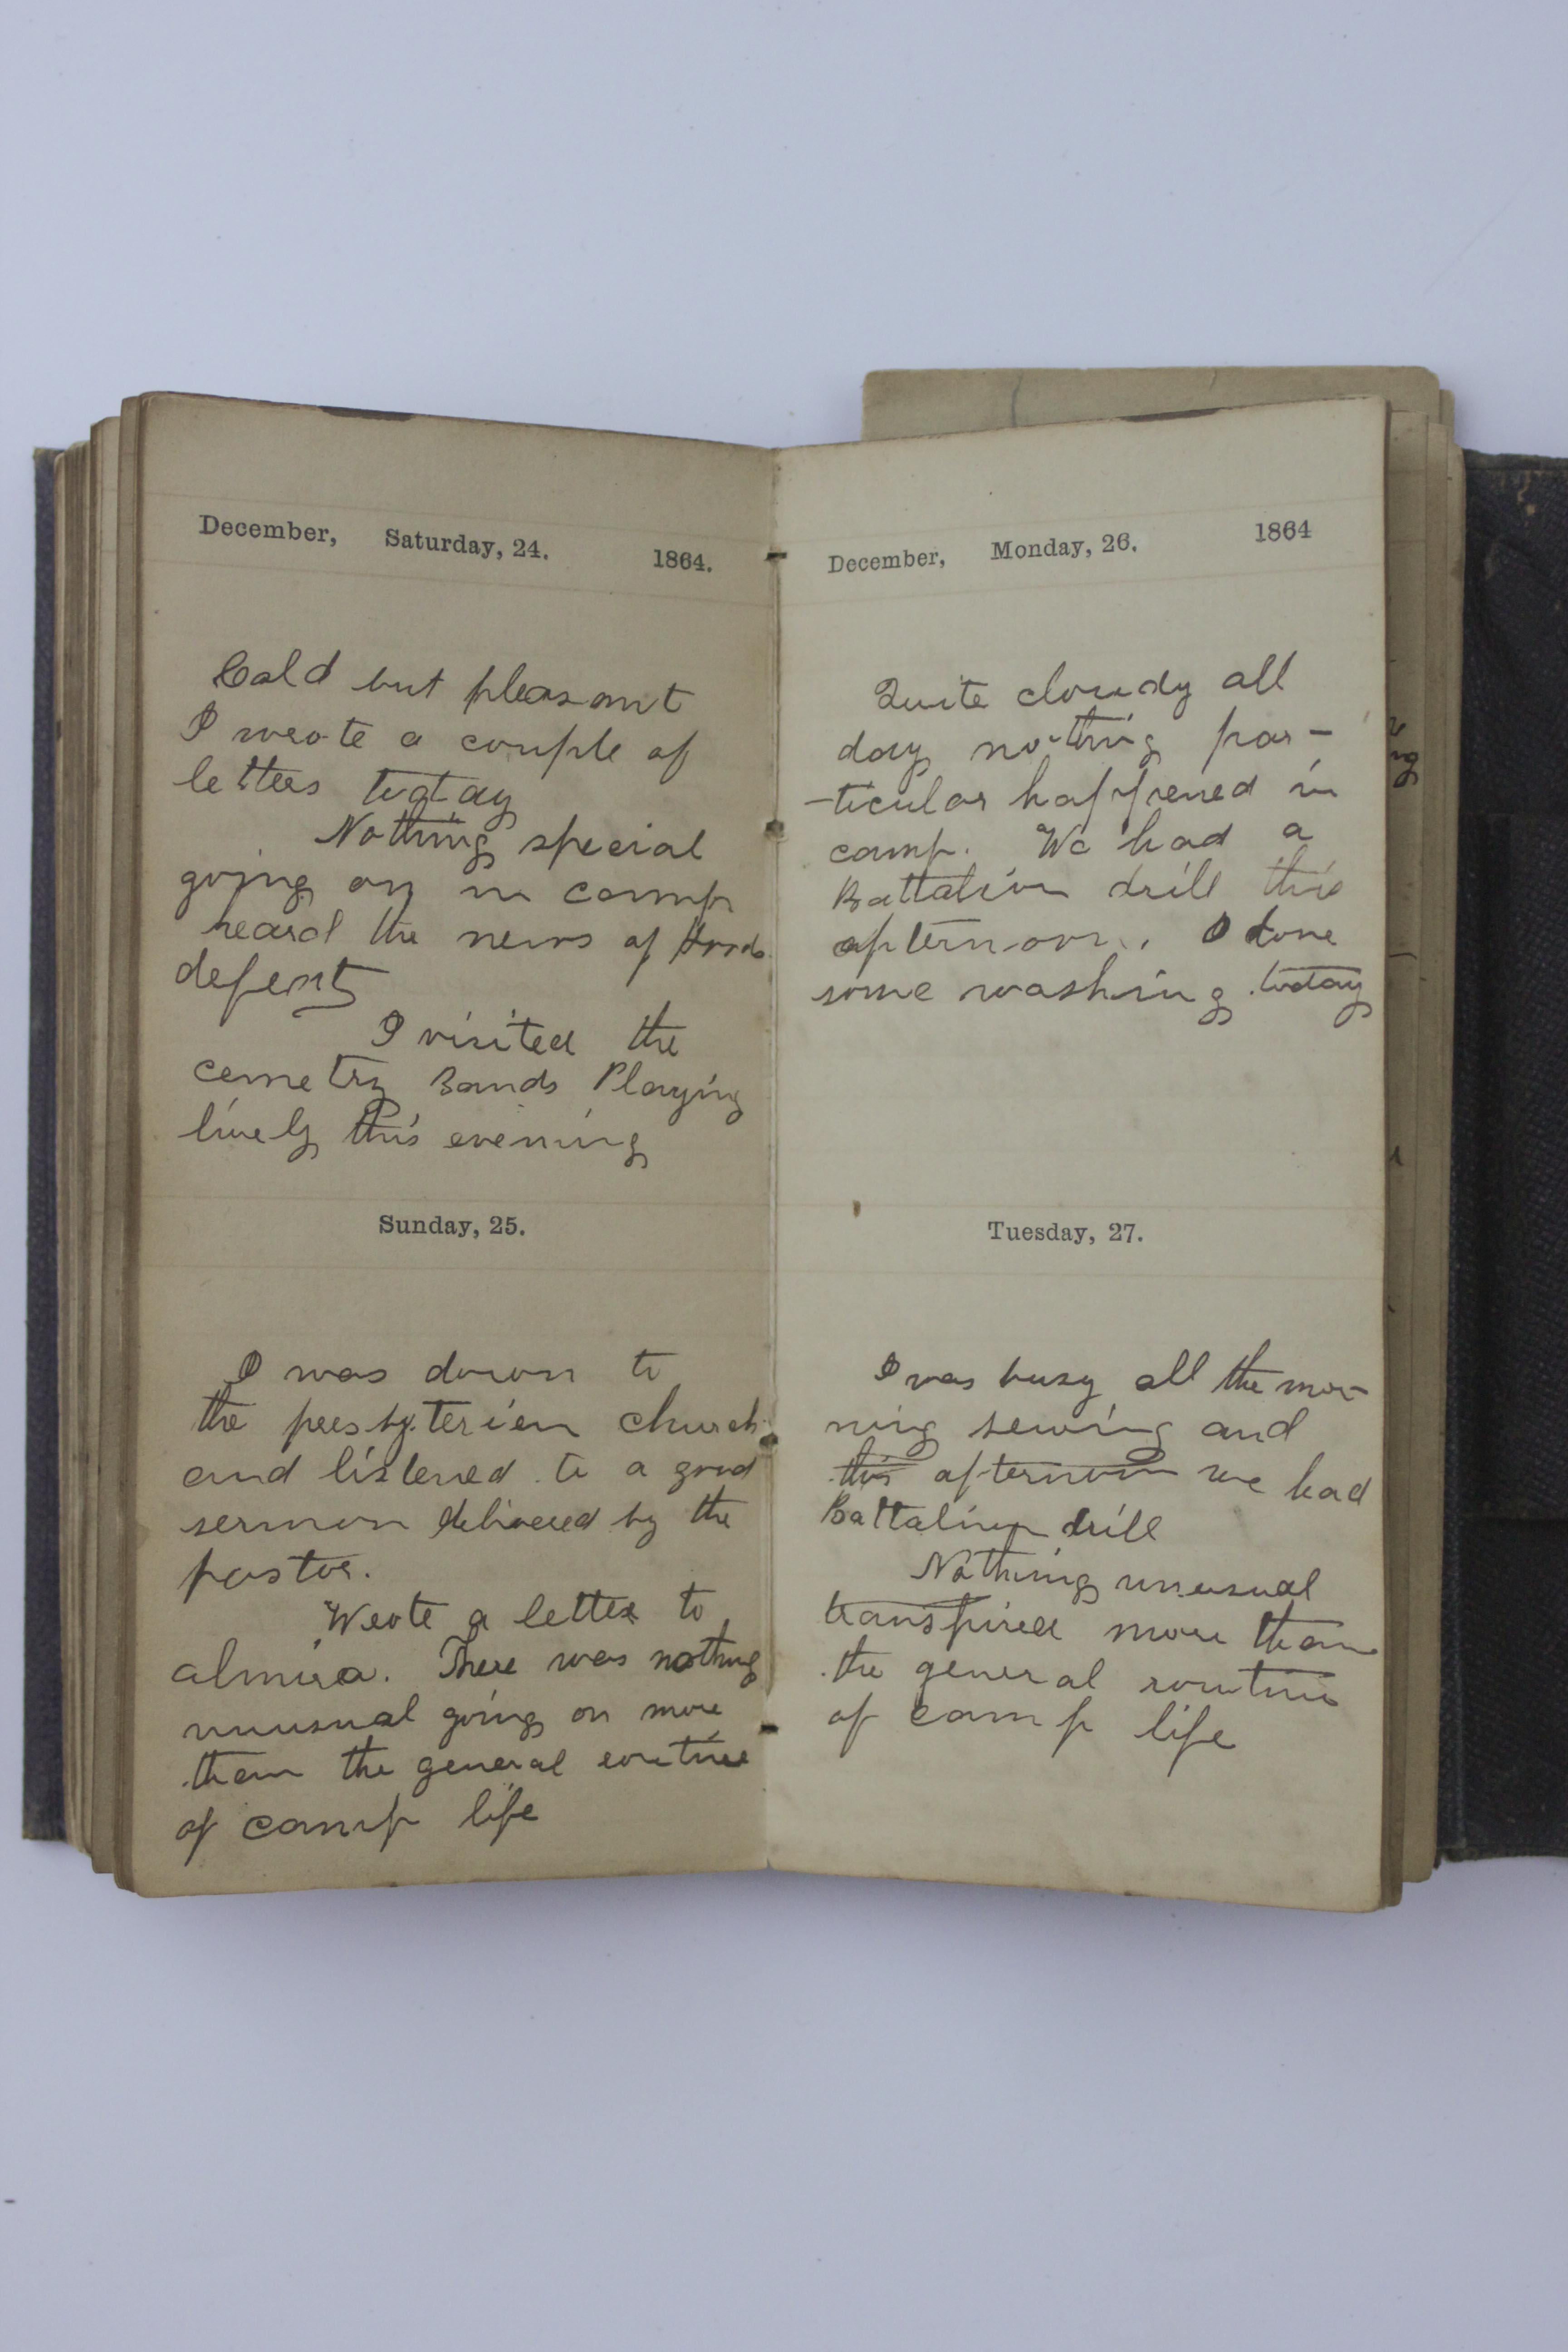 December, Saturday, 24. 1864.
Cold but pleasant
I wrote a couple of
letters today
Nothing special
going on in camp
heard the news of Hoods
defeat
I visited the
cemetry Bands Playing
lively this evening
Sunday, 25.
I was down to
the presbyterien church
and listened to a good
sermon delivered by the
pastor.
Wrote a letter to
almira. There was nothing
unusual going on more
than the general routine
of camp life
December, Monday, 26. 1864
Quite cloudy all
day nothing par-
-ticular happened in
camp. We had a
Battalion drill this
afternoon. I done
some washing today
Tuesday, 27.
I was busy all the mor-
ning sewing and
this afternoon we had
Battalion drill
Nothing unusual
transpired more than
the general routine
of camp life